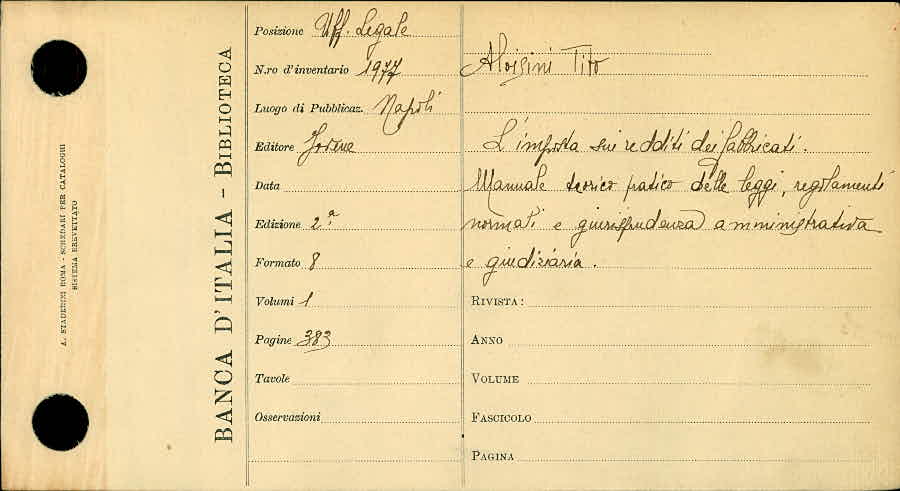 A. STADERINI ROMA - SCHEDARI PER CATALOGHI
SISTEMA BREVETTATO
BANCA D'ITALIA - BIBLIOTECA
Posizione Uff. Legale
N.ro d'inventario 1977
Luogo di Pubblicaz. Napoli
Editore Jovene
Data
Edizione 2ª
Formato 8
Volumi 1
Pagine 383
Tavole
Osservazioni
Aloisini Tito
L'imposta sui redditi dei fabbricati.
Manuale teorico pratico delle leggi, regolamenti
normali e giurisprudenza amministrativa
e giudiziaria.
RIVISTA:
ANNO
VOLUME
FASCICOLO
PAGINA